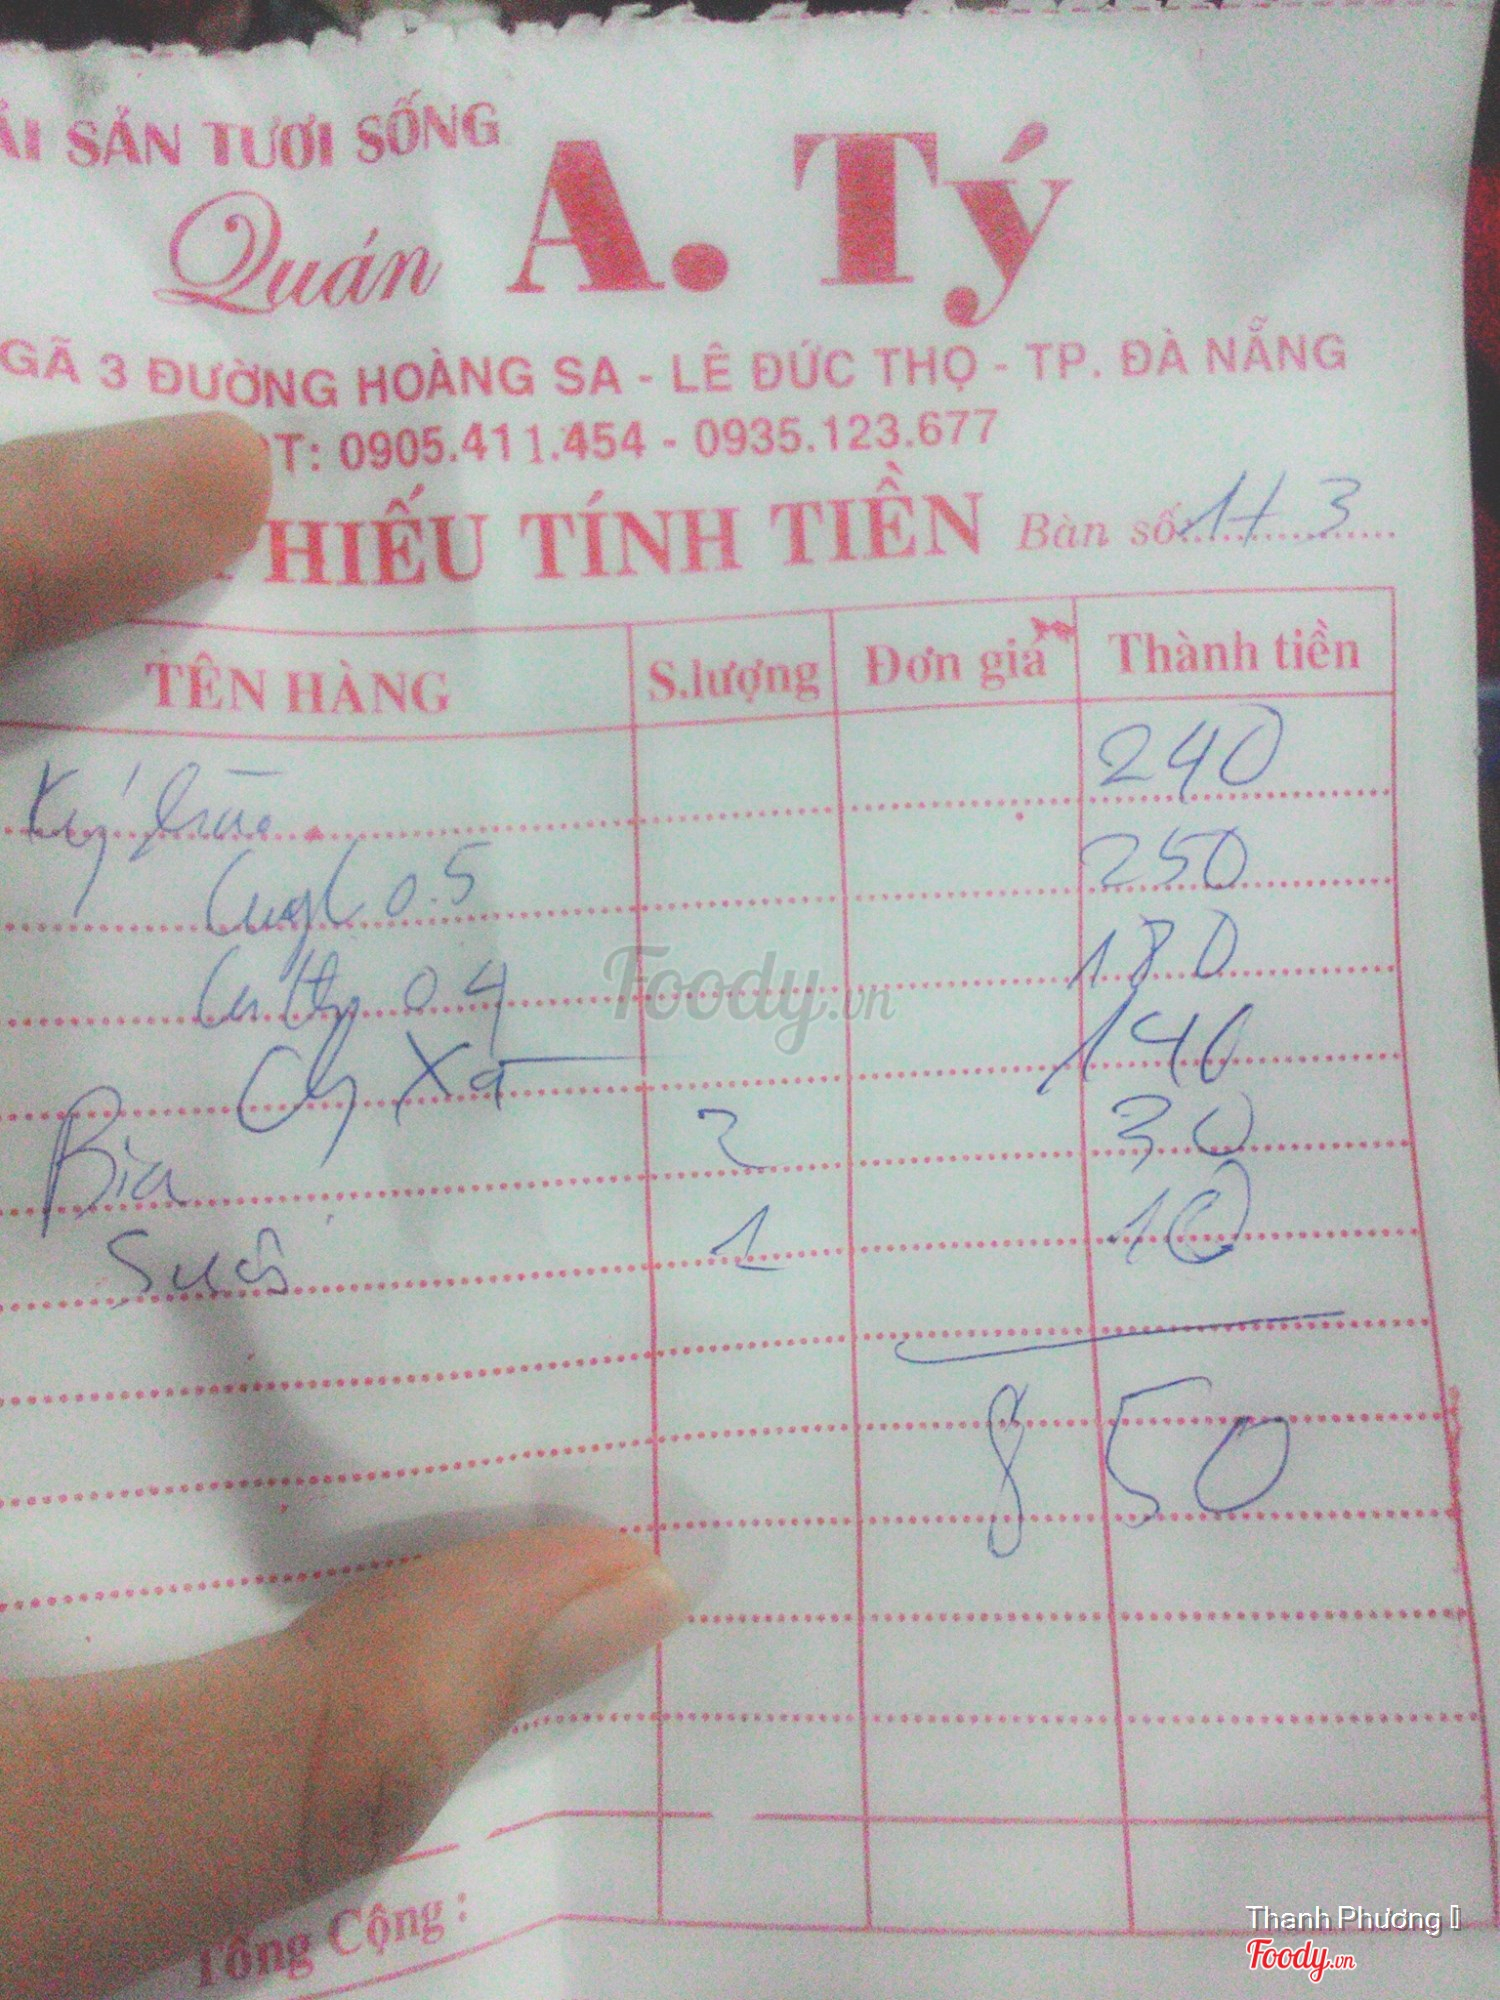 ẢI SẢN TƯƠI SỐNG
Quán A. Tý
GÃ 3 ĐƯỜNG HOÀNG SA - LÊ ĐỨC THỌ - TP. ĐÀ NẴNG
T: 0905.411.454 - 0935.123.677
HIẾU TÍNH TIỀN Bàn số: 3
TÊN HÀNG S.lượng Đơn giá Thành tiền
240
0.5 250
0.4 180
140
Bia 2 30
1 10
850
Tổng Cộng :
Foody.vn
Thanh Phương
Foody.vn